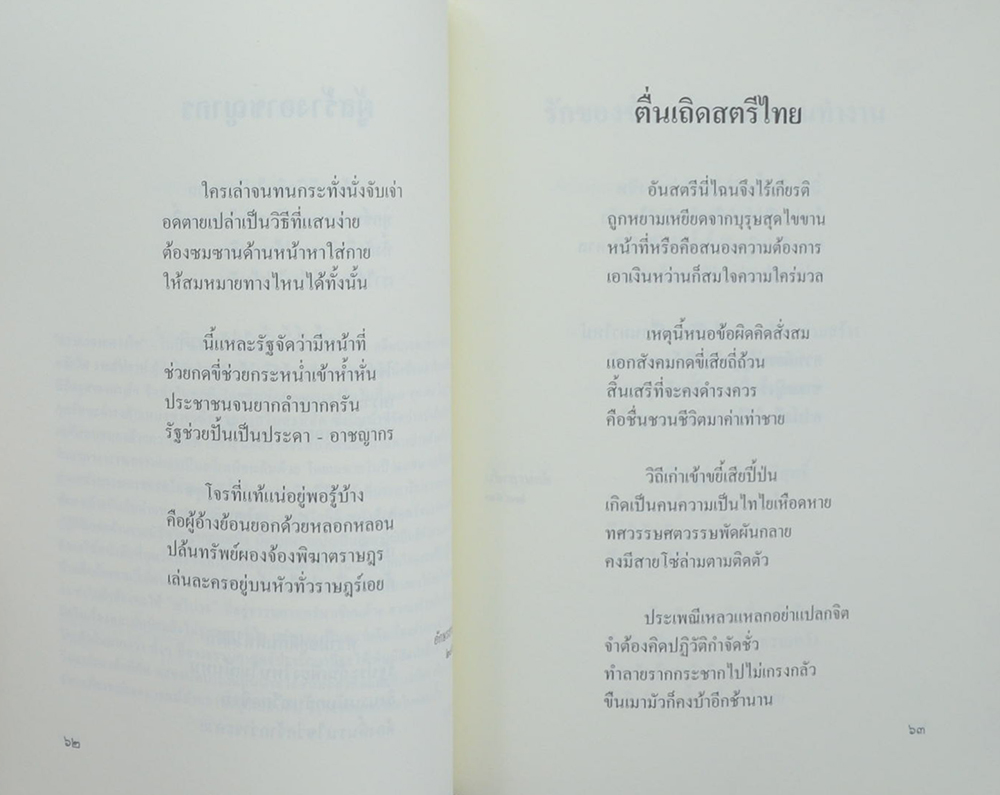 ใครเล่าจนทนกระทั่งนั่งจับเจ่า
อดตายเปล่าเป็นวิธีที่แสนง่าย
ต้องซมซานด้านหน้าหาใส่กาย
ให้สมหมายทางไหนได้ทั้งนั้น
นี้แหละรัฐจัดว่ามีหน้าที่
ช่วยกดขี่ช่วยกระหน่ำเข้าห้ำหั่น
ประชาชนจนยากลำบากครัน
รัฐช่วยปั้นเป็นประดา - อาชญากร
โจรที่แท้แน่อยู่พอรู้บ้าง
คือผู้อ้างย้อนยอกด้วยหลอกหลอน
ปล้นทรัพย์ผองจ้องพิฆาตราษฎร
เล่นละครอยู่บนหัวทั่วราษฎร์เอย
๖๒
ตื่นเถิดสตรีไทย
อันสตรีนี่ไฉนจึงไร้เกียรติ
ถูกหยามเหยียดจากบุรุษสุดไขขาน
หน้าที่หรือคือสนองความต้องการ
เอาเงินหว่านก็สมใจความใคร่มวล
เหตุนี้หนอข้อผิดคิดสั่งสม
แอกสังคมกดขี่เสียถี่ถ้วน
สิ้นเสรีที่จะคงดำรงควร
คือชื่นชวนชีวิตมาค่าเท่าชาย
วิถีเก่าเข้าขยี้เสียปี้ป่น
เกิดเป็นคนความเป็นไทไยเหือดหาย
ทศวรรษศตวรรษพัดผันกลาย
คงมีสายโซ่ล่ามตามติดตัว
ประเพณีเหลวแหลกอย่าแปลกจิต
จำต้องคิดปฏิวัติกำจัดชั่ว
ทำลายรากกระชากไปไม่เกรงกลัว
ขืนเมามัวก็คงบ้าอีกช้านาน
๖๓